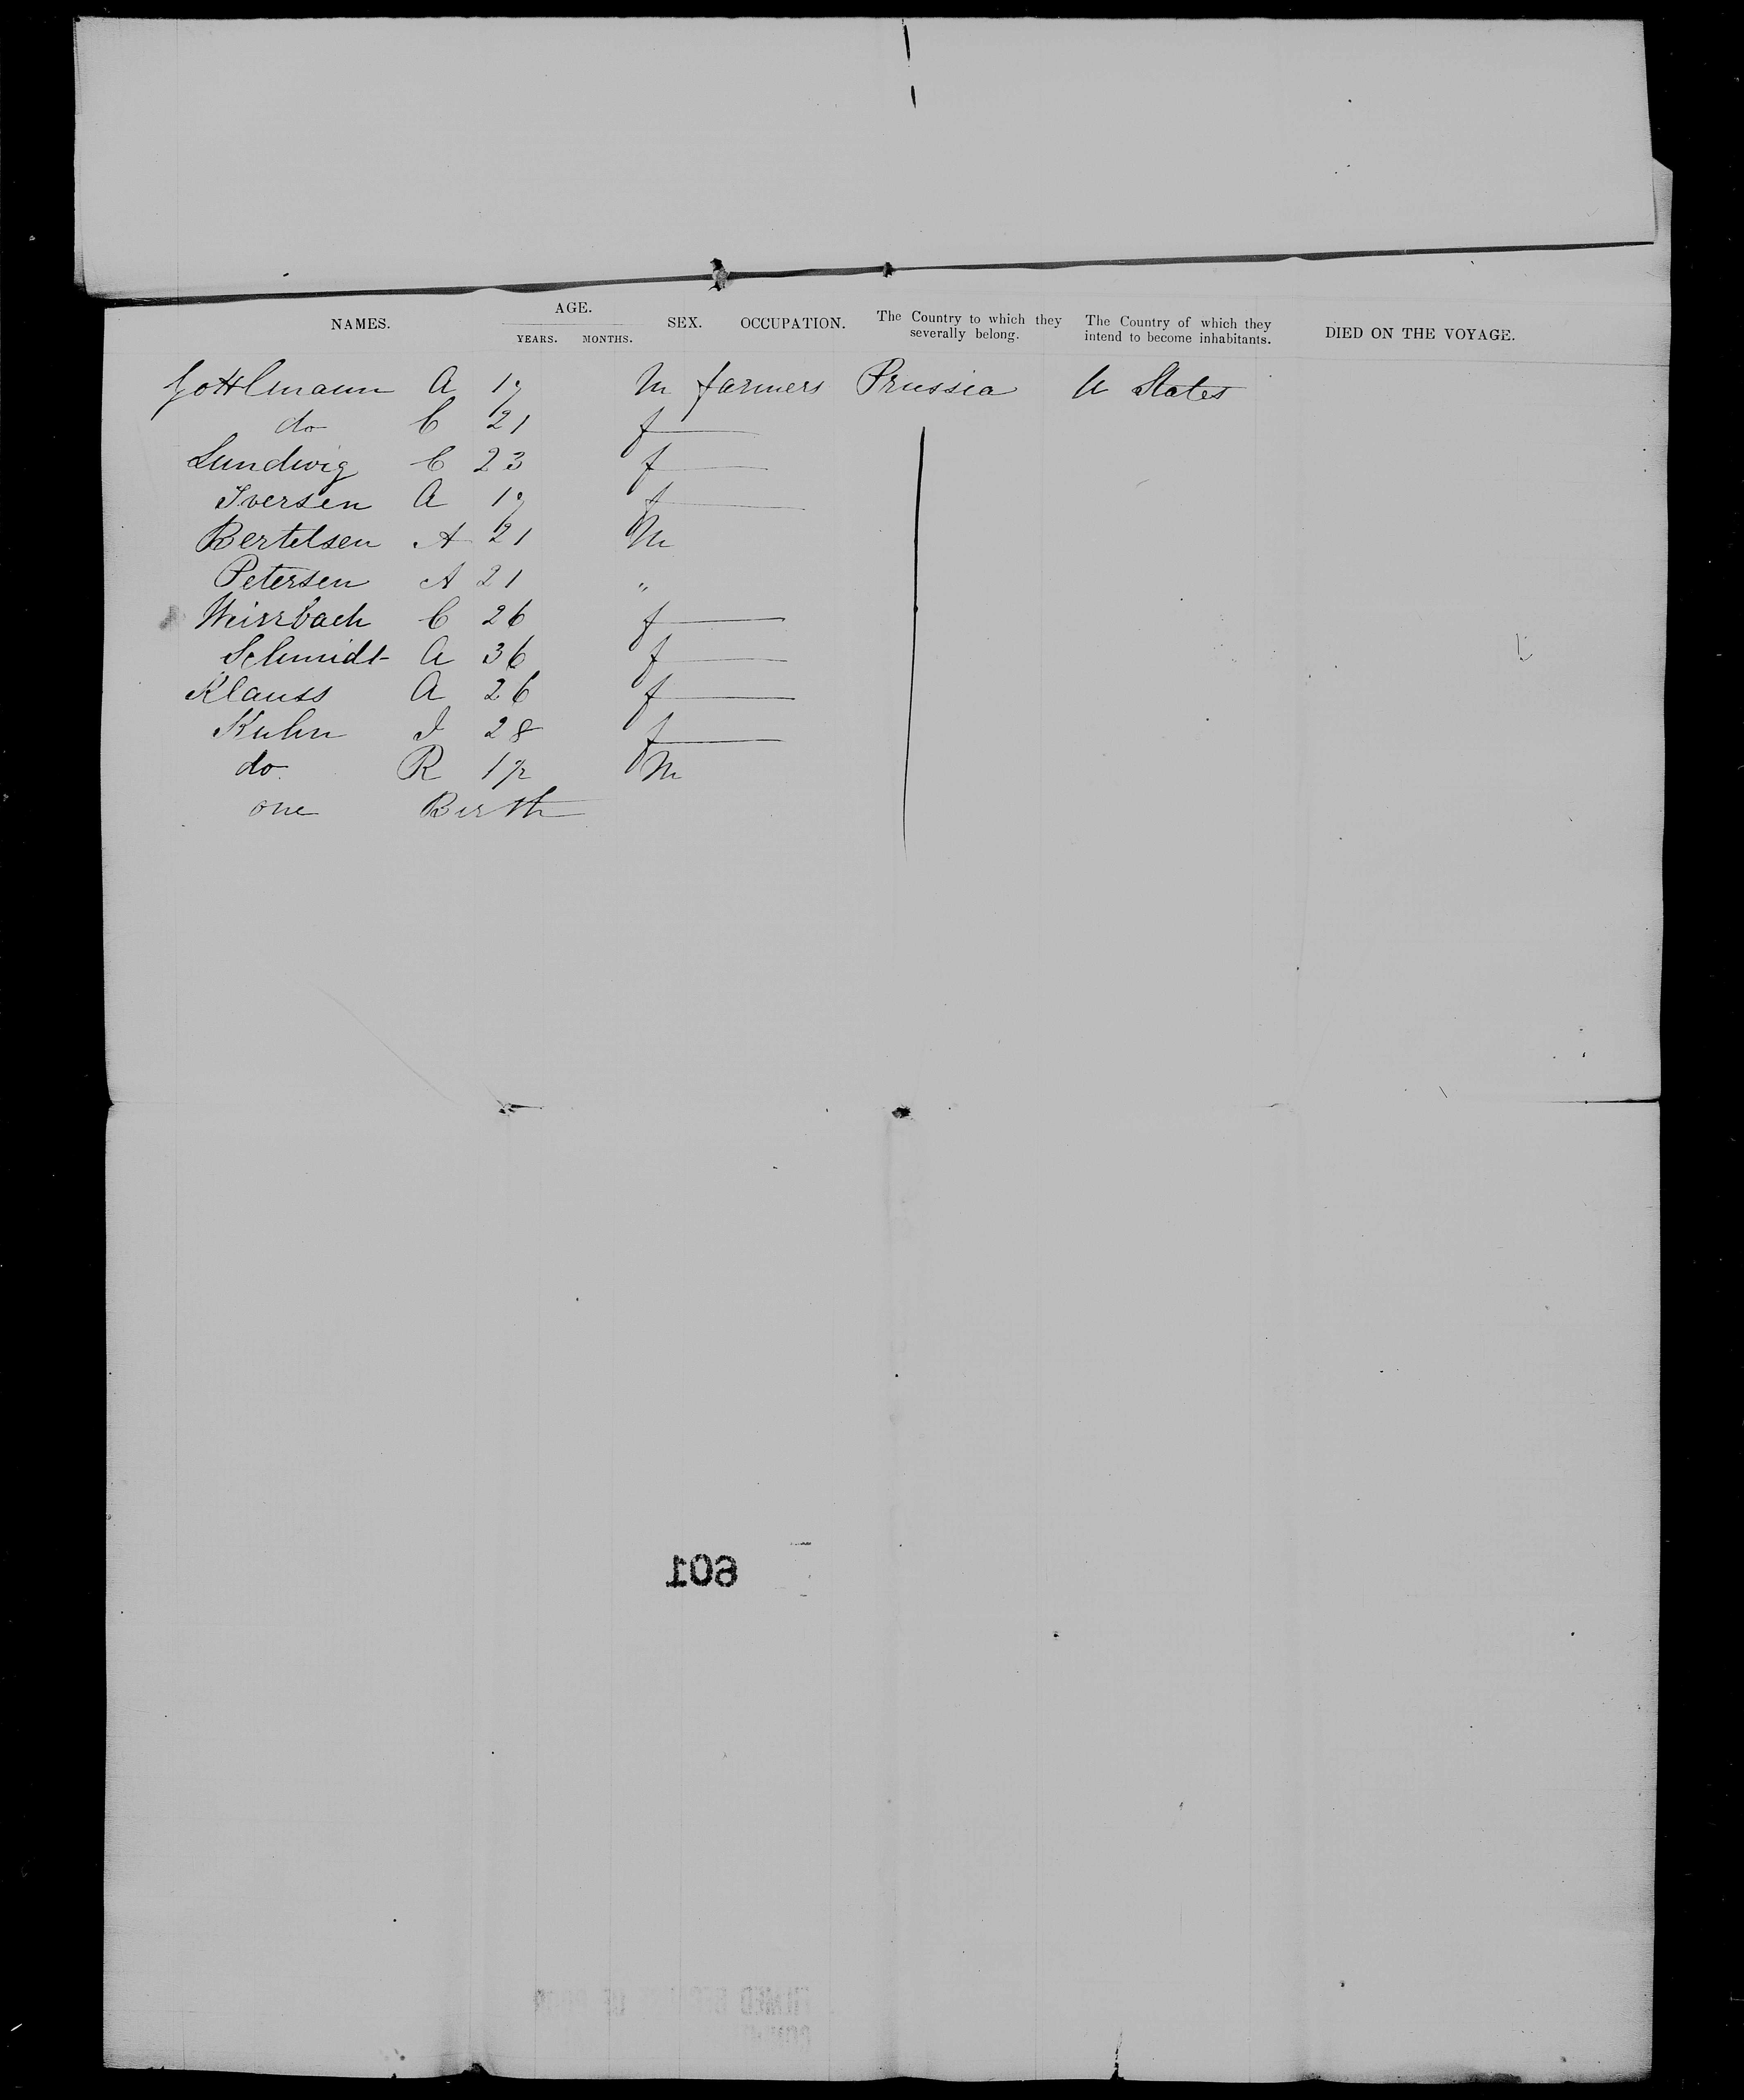 NAMES. AGE. YEARS. MONTHS. SEX. OCCUPATION. The Country to which they severally belong. The Country of which they intend to become inhabitants. DIED ON THE VOYAGE.
Gottlmann A 19 M farmers Prussia U States
do C 21 f
Lundwig C 23 f
Iversen A 19 f
Bertelsen A 21 M
Petersen A 21 "
Weissbach C 26 f
Schmidt A 36 f
Klauss A 26 f
Kuhn J 28 f
do R 1/2 M
one Birth
109